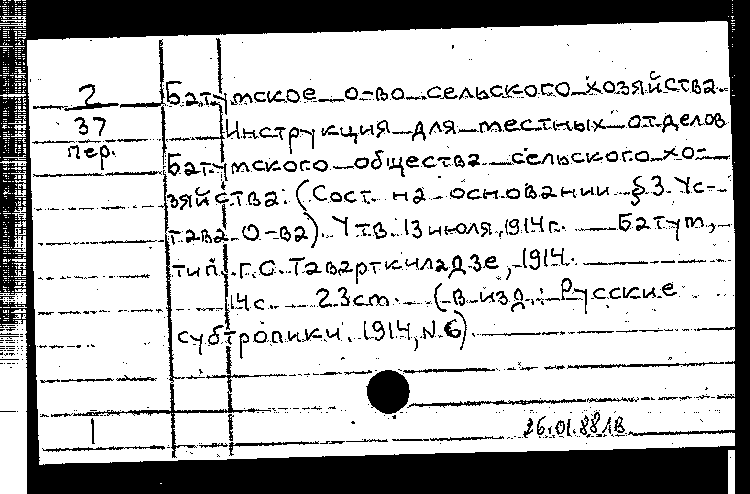 2
37
пер.
Батумское о-во сельского хозяйства.
Инструкция для местных отделов
Батумского общества сельского хо-
зяйства. (Сост. на основании § 3 Ус-
тава О-ва). Утв. 13 июля 1914 г. Батум,
тип. Г.С. Таварткиладзе, 1914.
14 с. 23 cm. (В изд.: Русские
субтропики. 1914, N. 6).
1
26.01.88